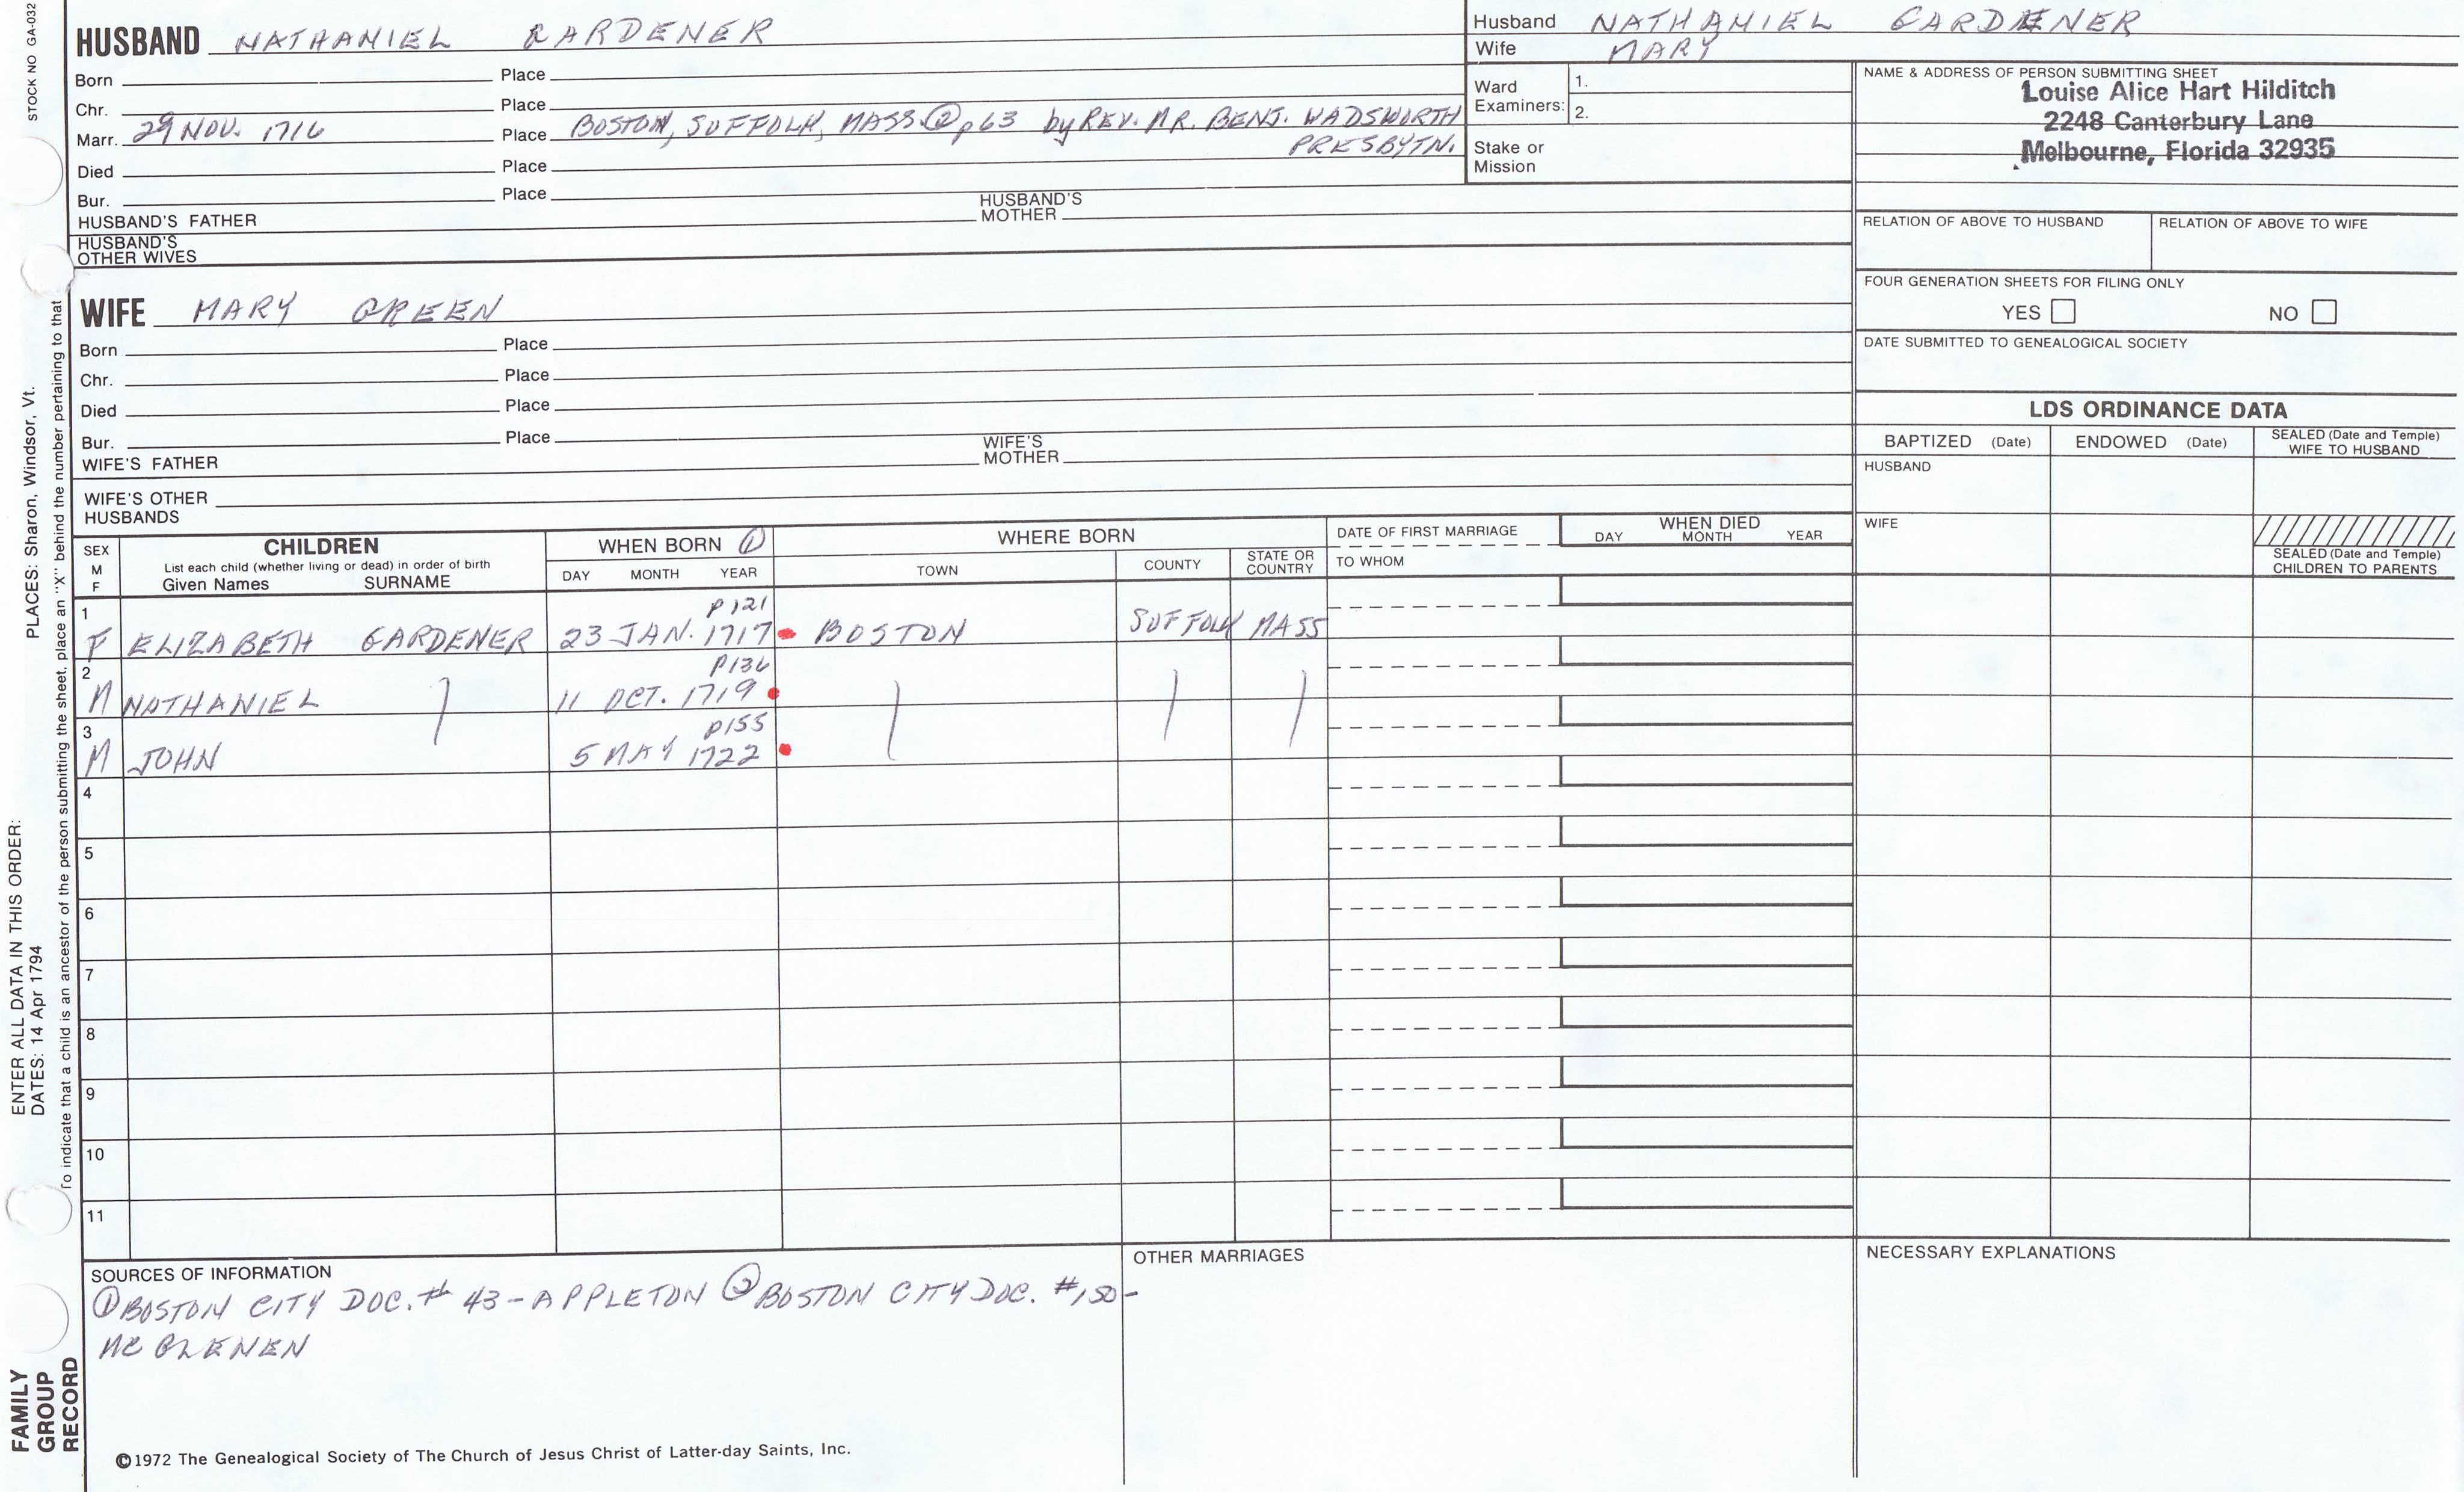 STOCK NO GA-032
HUSBAND NATHANIEL GARDENER
Born Place
Chr. Place
Marr. 29 NOV. 1716 Place BOSTON, SUFFOLK, MASS. ② p63 by REV. MR. BENJ. WADSWORTH
PRESBYTN.
Died Place
Bur. Place
HUSBAND'S FATHER HUSBAND'S MOTHER
HUSBAND'S
OTHER WIVES
Husband NATHANIEL GARDENER
Wife MARY
Ward
Examiners:
1.
2.
Stake or
Mission
NAME & ADDRESS OF PERSON SUBMITTING SHEET
Louise Alice Hart Hilditch
2248 Canterbury Lane
Melbourne, Florida 32935
RELATION OF ABOVE TO HUSBAND RELATION OF ABOVE TO WIFE
FOUR GENERATION SHEETS FOR FILING ONLY
YES NO
DATE SUBMITTED TO GENEALOGICAL SOCIETY
WIFE MARY GREEN
Born Place
Chr. Place
Died Place
Bur. Place
WIFE'S FATHER WIFE'S MOTHER
WIFE'S OTHER
HUSBANDS
LDS ORDINANCE DATA
BAPTIZED (Date) ENDOWED (Date) SEALED (Date and Temple)
WIFE TO HUSBAND
HUSBAND
WIFE
SEALED (Date and Temple)
CHILDREN TO PARENTS
SEX
M
F
CHILDREN
List each child (whether living or dead) in order of birth
Given Names SURNAME
WHEN BORN ①
DAY MONTH YEAR
WHERE BORN
TOWN COUNTY STATE OR
COUNTRY
DATE OF FIRST MARRIAGE
TO WHOM
WHEN DIED
DAY MONTH YEAR
1 P121
F ELIZABETH GARDENER 23 JAN. 1717 BOSTON SUFFOLK MASS
2 P136
M NATHANIEL 11 OCT. 1719
3 P155
M JOHN 5 MAY 1722
4
5
6
7
8
9
10
11
SOURCES OF INFORMATION
① BOSTON CITY DOC. # 43 - APPLETON ② BOSTON CITY DOC. #150-
MC GLENEN
OTHER MARRIAGES
NECESSARY EXPLANATIONS
©1972 The Genealogical Society of The Church of Jesus Christ of Latter-day Saints, Inc.
FAMILY
GROUP
RECORD
ENTER ALL DATA IN THIS ORDER:
DATES: 14 Apr 1794
PLACES: Sharon, Windsor, Vt.
To indicate that a child is an ancestor of the person submitting the sheet, place an "X" behind the number pertaining to that